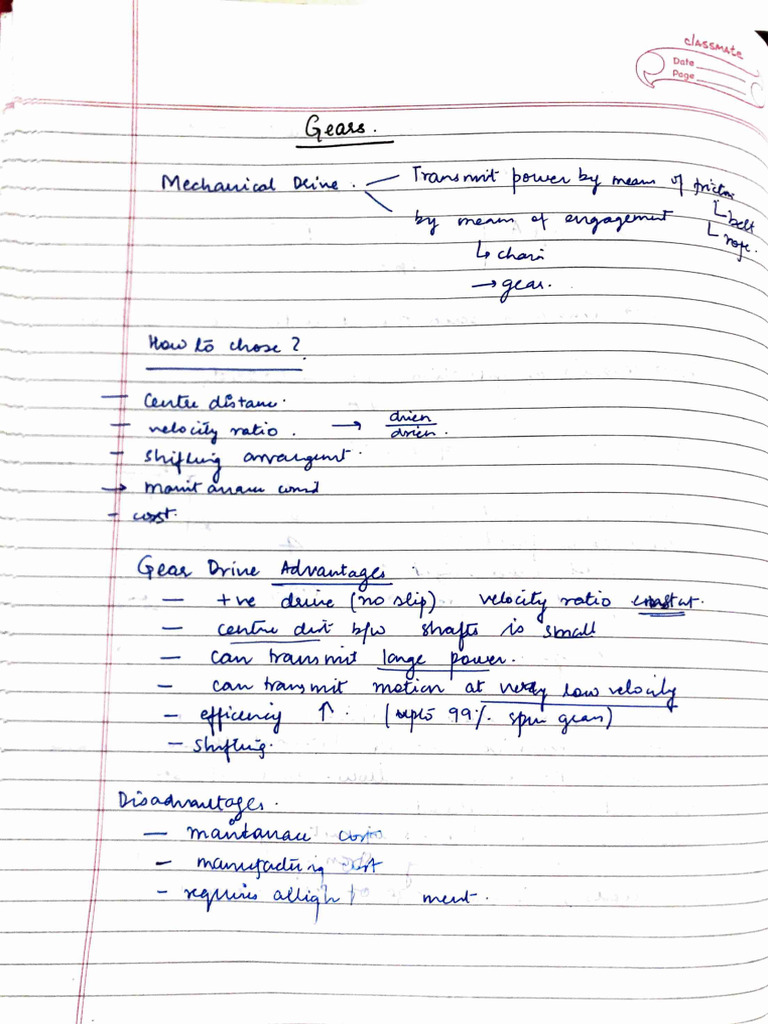 classmate
Date
Page
Gears.
Mechanical Drive. Transmit power by means of friction
↳ belt
↳ rope.
by means of engagement
↳ chain
→ gear.
How to chose?
— Centre distance.
— velocity ratio. →
— Shifting arrangemt.
→
- cost.
Gear Drive Advantages
— +ve drive (no slip) velocity ratio
— centre dist b/w shafts is small
— can transmit large power.
— can transmit motion at very low velocity
— efficency ↑. (upto 99% spur gears)
— Shifting.
Disadvantages.
— cost
— manufacturing cost
— requires alligh ment.